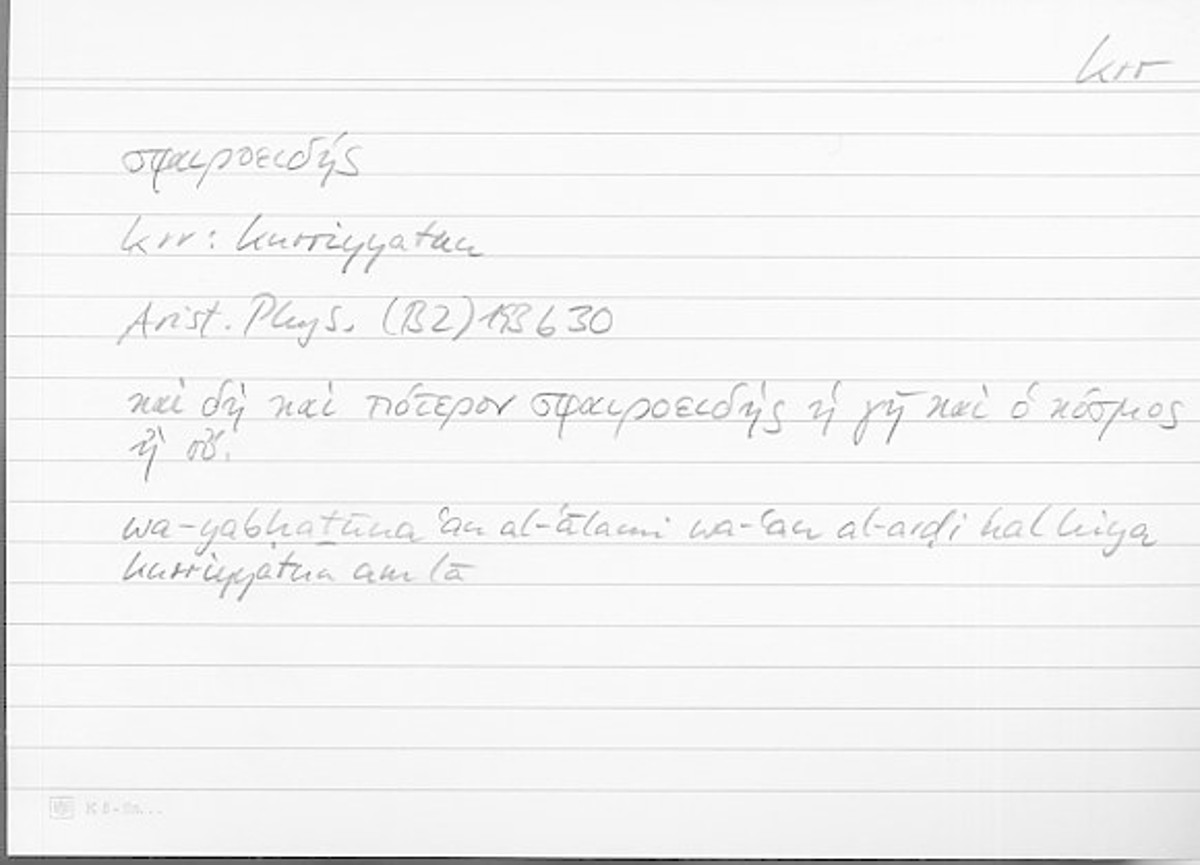 krr
σφαιροειδής
krr: kurriyyatun
Arist. Phys. (B2) 193b30
καὶ δὴ καὶ πότερον σφαιροειδὴς ἡ γῆ καὶ ὁ κόσμος
ἢ οὔ.
wa-yabḥaṯūna ʿan al-ʿālami wa-ʿan al-arḍi hal hiya
kurriyyatun am lā